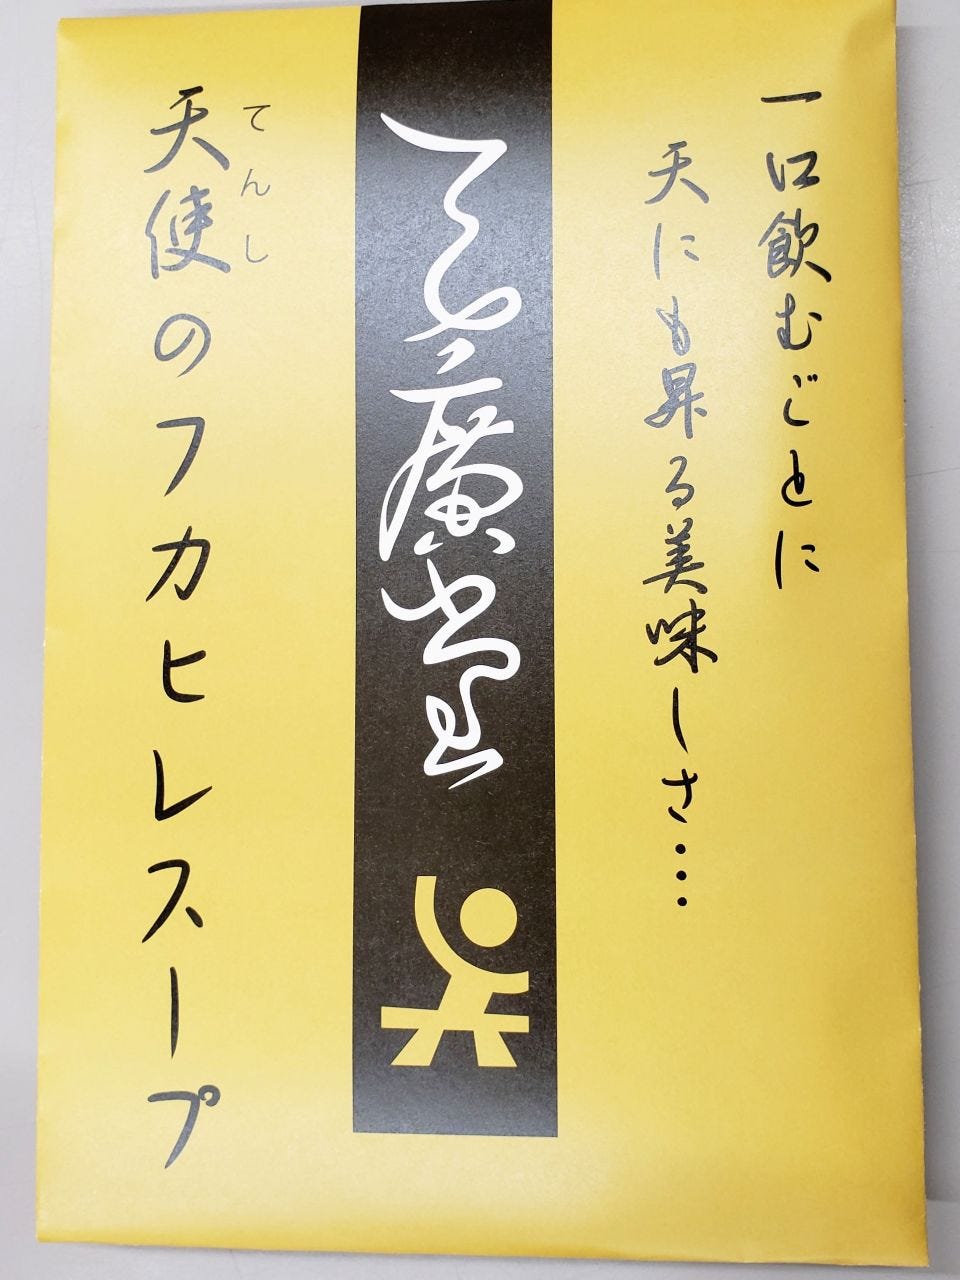 一口飲むごとに
天にも昇る美味しさ・・・
天廣堂
てんし
天使のフカヒレスープ